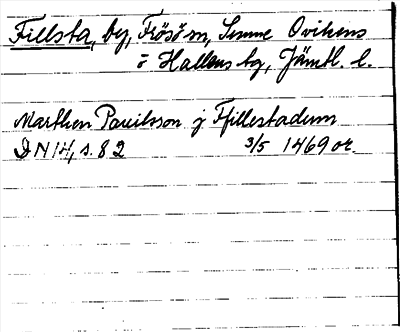 Fillsta, by, Frösö sn, Sunne Ovikens
o Hallens tg, Jämtl. l.
Marthen Pauilsson j Ffillestadum
DN 14, s. 82 3/5 1469 or.